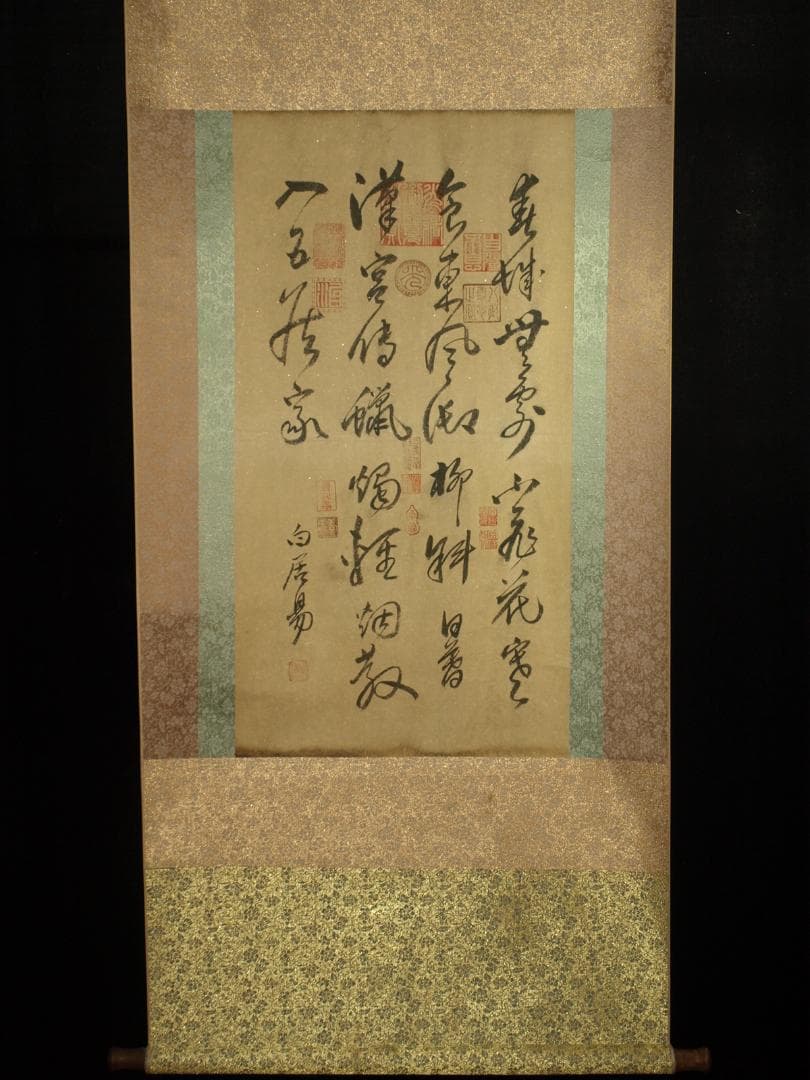 春城無處不飛花寒
食東風御柳斜日暮
漢宮傳蠟燭輕烟散
入五侯家
白居易